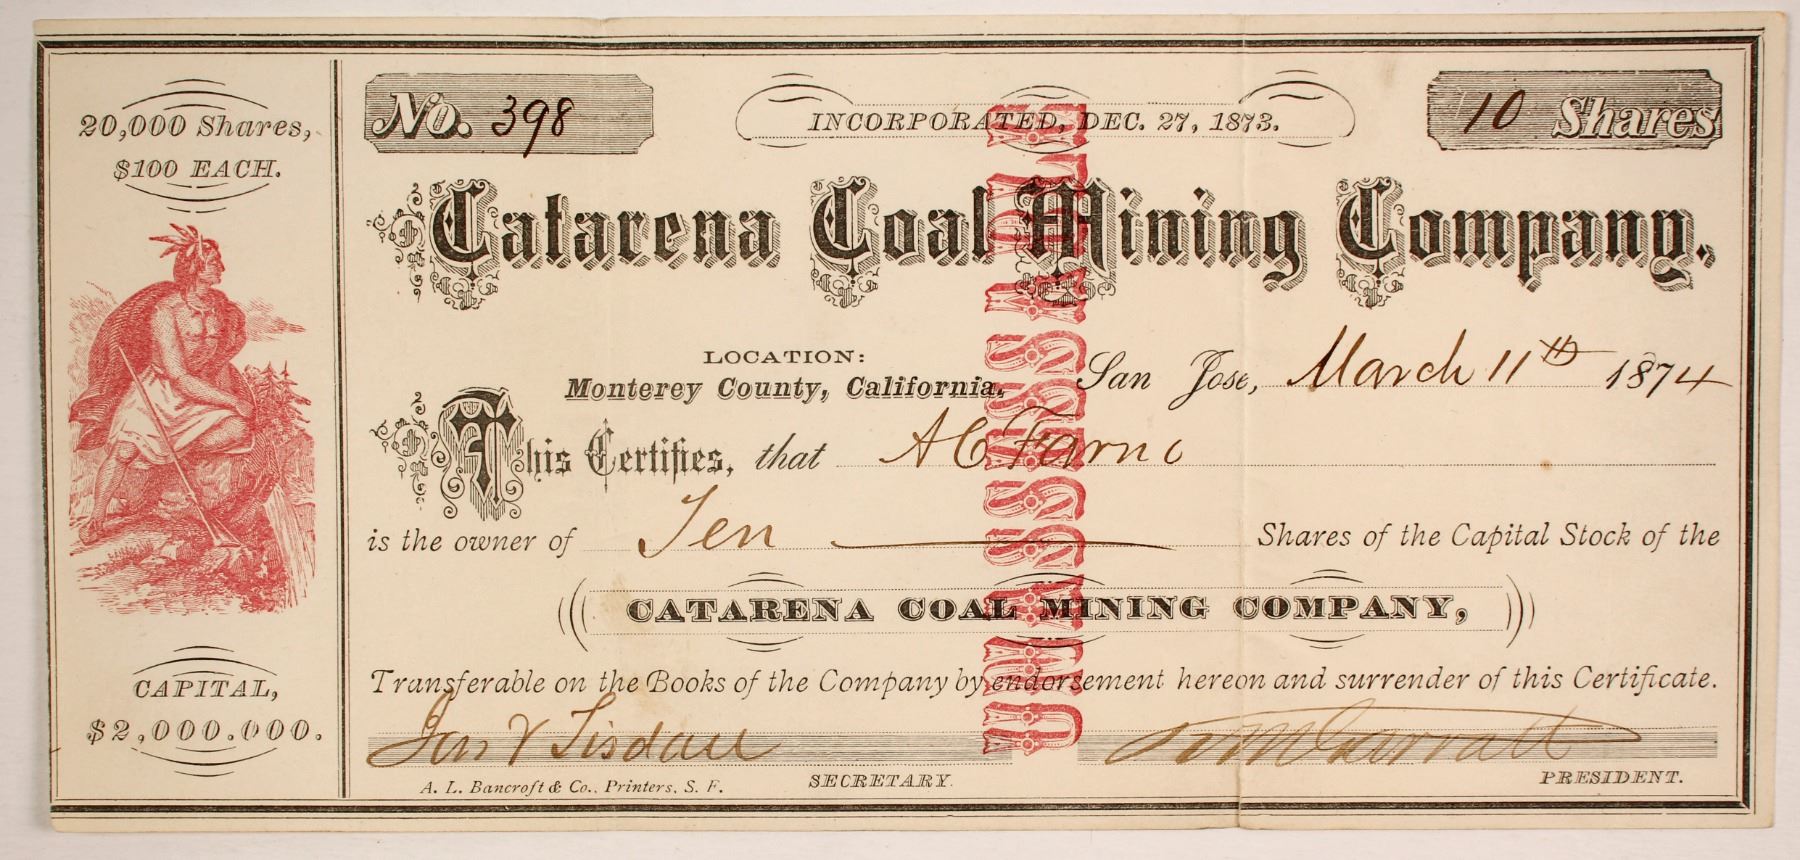 20,000 Shares,
$100 EACH.
CAPITAL,
$2,000.000.
No. 398
INCORPORATED, DEC. 27, 1873.
10 Shares
Catarena Coal Mining Company.
LOCATION:
Monterey County, California.
San Jose, March 11th 1874
This Certifies, that A C
is the owner of Ten Shares of the Capital Stock of the
CATARENA COAL MINING COMPANY,
Transferable on the Books of the Company by endorsement hereon and surrender of this Certificate.
Tisdall
A. L. Bancroft & Co., Printers, S. F.
SECRETARY.
PRESIDENT.
UNASSESSABLE